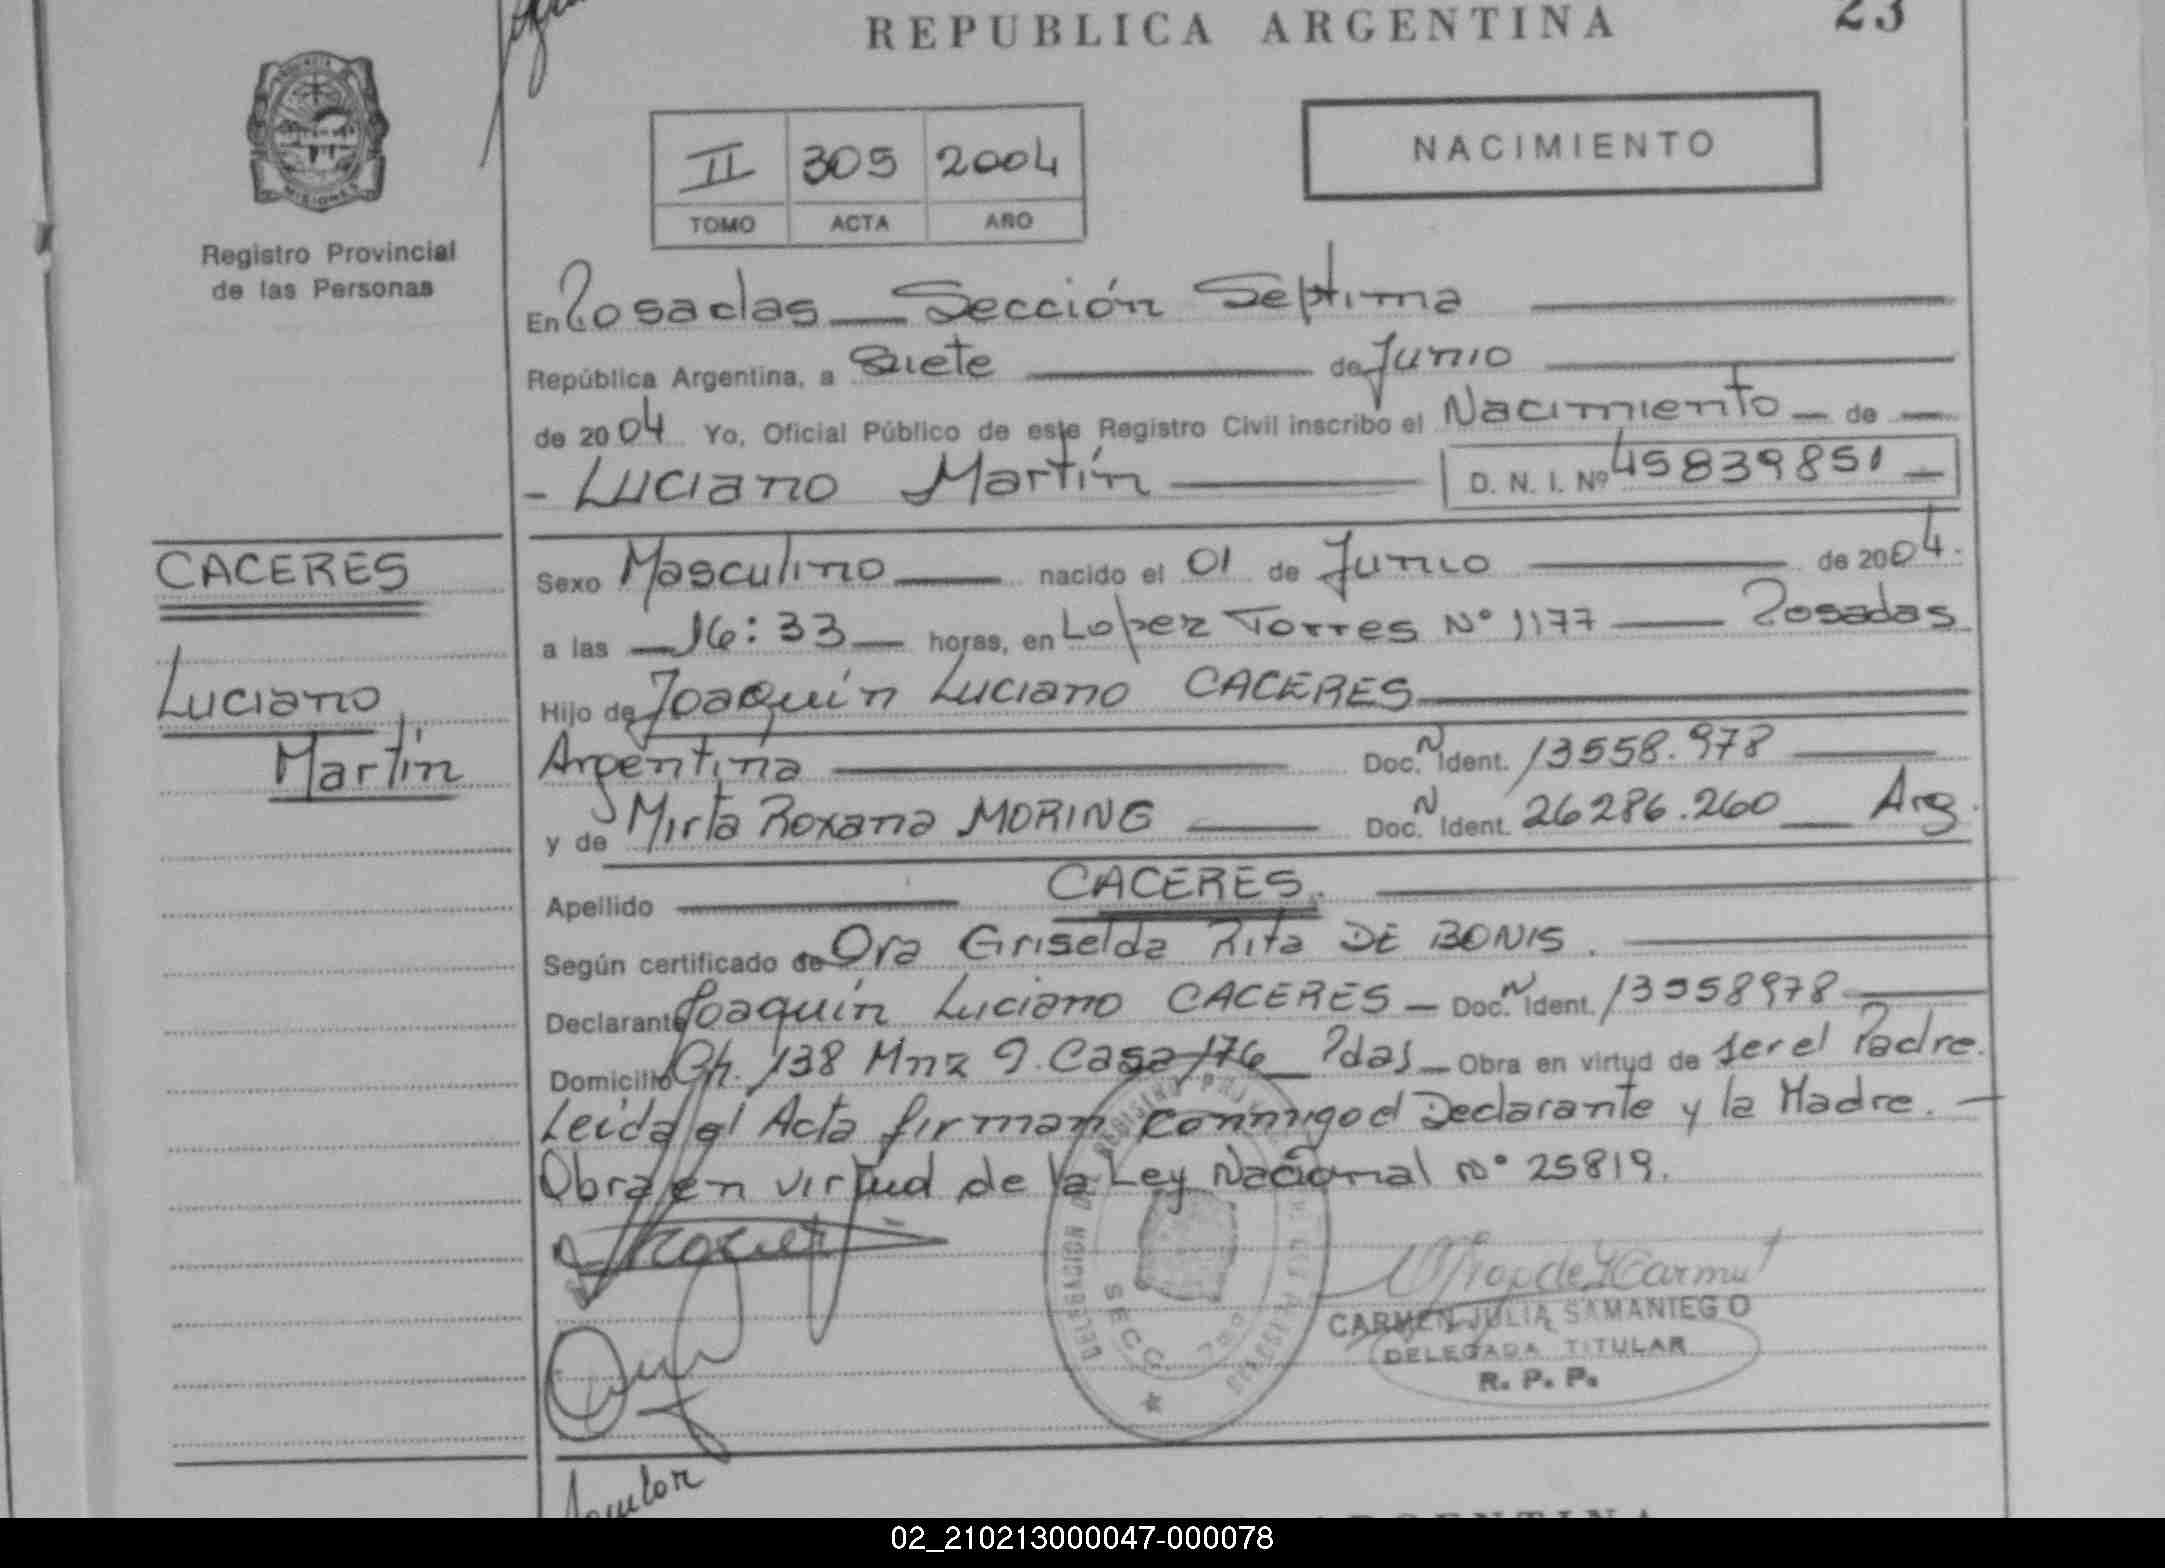 REPUBLICA ARGENTINA
23
PROVINCIA
MISIONES
Registro Provincial
de las Personas
II 305 2004
TOMO ACTA AÑO
NACIMIENTO
En Posadas — Sección Septima
República Argentina, a Siete de Junio
de 2004 Yo, Oficial Público de este Registro Civil inscribo el Nacimiento — de —
- Luciano Martín D. N. I. Nº 45839851 —
CACERES
Luciano
Martín
Sexo Masculino — nacido el 01 de Junio — de 2004.
a las — 16:33 — horas, en Lopez Torres N° 1177 — Posadas
Hijo de Joaquín Luciano CACERES
Argentina — Doc. N Ident. 13558.978
y de Mirta Roxana MORING — Doc. N Ident. 26286.260 — Arg.
Apellido — CACERES.
Según certificado de Dra Griselda Rita DE BONIS.
Declarante Joaquín Luciano CACERES — Doc. N Ident. 13558978
Domicilio Ch. 138 Mnz 9. Casa 176 — Pdas — Obra en virtud de ser el Padre.
Leida el Acta firman conmigo el Declarante y la Madre. —
Obra en virtud de la Ley Nacional N° 25819.
REGISTRO
SECC
CARMEN JULIA SAMANIEGO
DELEGADA TITULAR
R. P. P.
02_210213000047-000078